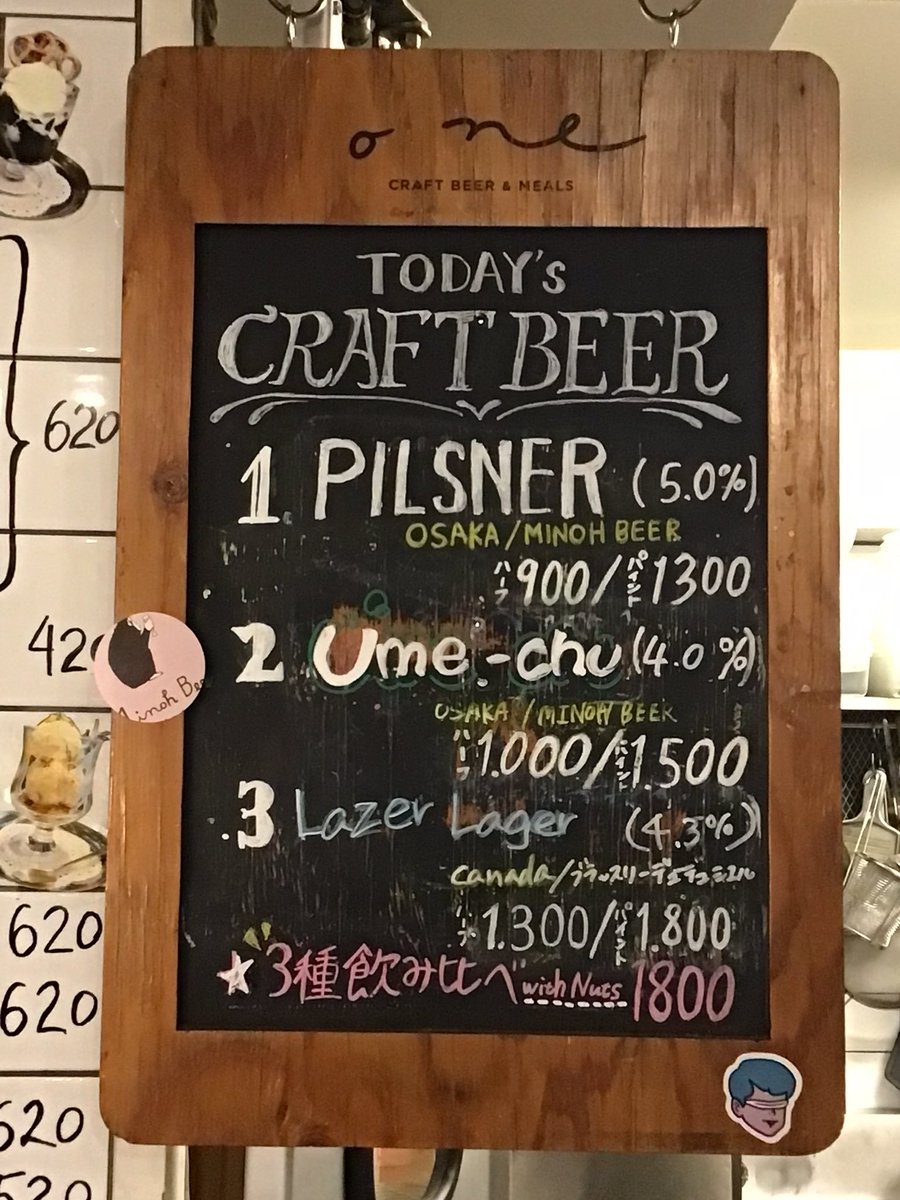 one
CRAFT BEER & MEALS
TODAY's
CRAFT BEER
1 PILSNER (5.0%)
OSAKA/MINOH BEER
ハーフ900/パイント1300
2 Ume-chu (4.0%)
OSAKA/MINOH BEER
ハーフ1.000/パイント1.500
3 Lazer Lager (4.3%)
canada/
ハーフ1.300/パイント1.800
☆3種飲み比べ with Nuts 1800
Minoh Bee
620
420
620
620
620
520